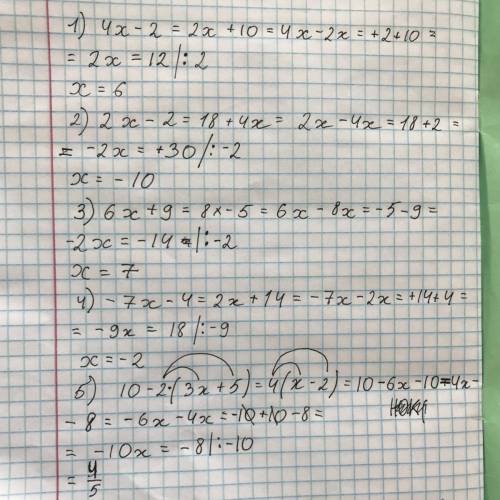 1) 4x - 2 = 2x + 10 = 4x - 2x = +2+10 =
= 2x = 12 |: 2
x = 6
2) 2x - 2 = 18 + 4x = 2x - 4x = 18 + 2 =
= -2x = +30 |: -2
x = - 10
3) 6x + 9 = 8x - 5 = 6x - 8x = -5 - 9 =
-2x = -14 |: -2
x = 7
4) - 7x - 4 = 2x + 14 = -7x - 2x = +14 + 4 =
= -9x = 18 |: -9
x = -2
5) 10 - 2·(3x + 5) = 4(x - 2) = 10 - 6x - 10 = 4x -
- 8 = -6x - 4x = -10 + 10 - 8 =
= -10x = -8 |: -10
= 4/5